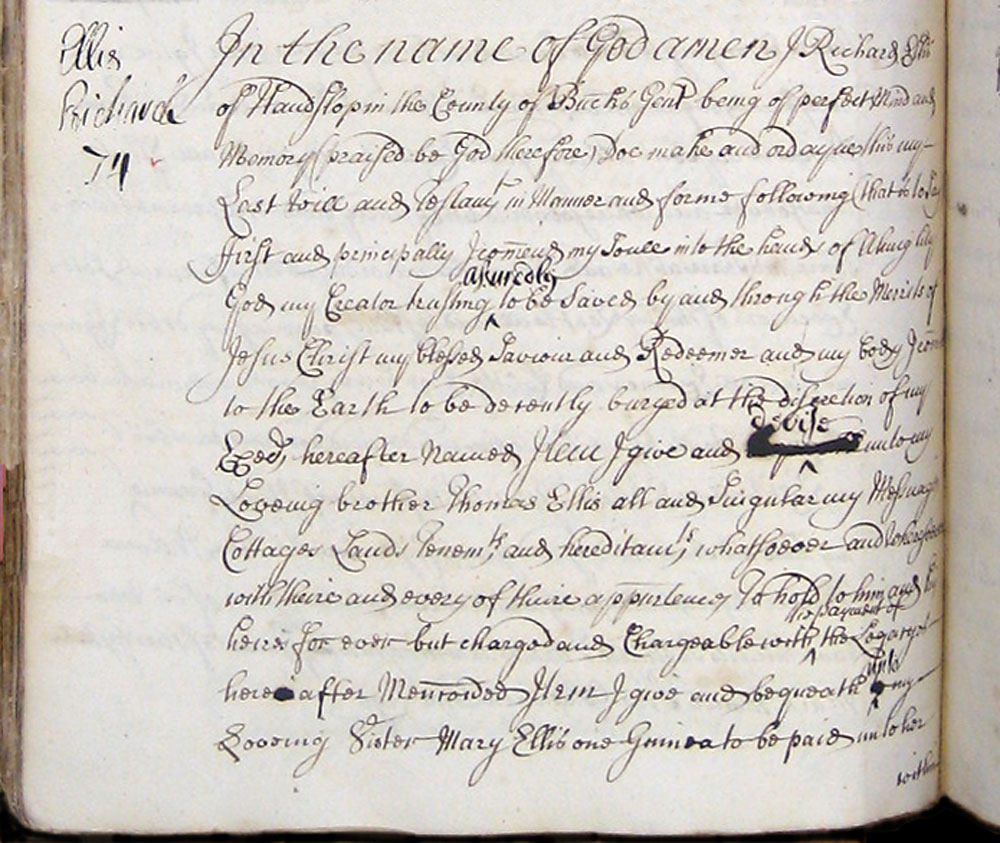 Ellis
Richard
74
In the name of God amen I Richard Ellis
of Handslop in the County of Bucks Gent being of perfect Mind and
Memory praised be God therefore, Doe make and ordayne this my
Last will and Testamt in Manner and forme following (that is to say
ffirst and principally I comend my Soule into the hands of Almighty
God my Creator trusting ^ asuredly to be Saved by and through the Merits of
Jesus Christ my blessed Saviour and Redeemer and my body I com
to the Earth to be decently buryed at the discretion of my
Execrs hereafter Named Item I give and ^ devise unto my
Loveing brother Thomas Ellis all and Singular my Messuages
Cottages Lands Tenemts and hereditamts whatsoever and wheresoever
with theire and every of theire appurtences To hold to him and his
heires for ever but charged and Chargeable with ^ the payment of the Legacyes
here after Mentoned Item I give and bequeath ^ unto my
Loveing Sister Mary Ellis one Guinea to be paid unto her
within